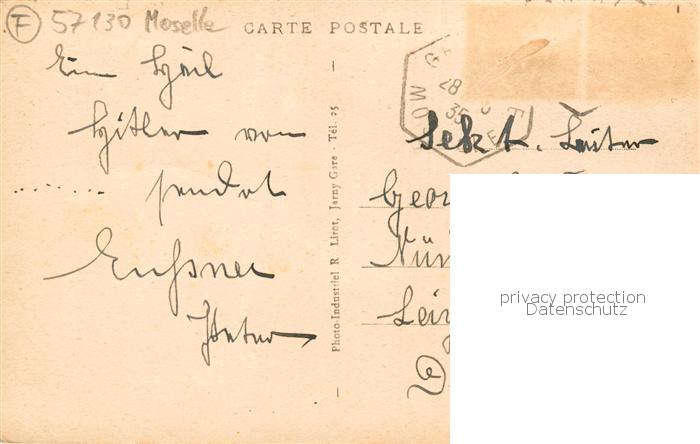 F 57130 Moselle
CARTE POSTALE
Ein Heil
Hitler von
........ sendet
Photo-Industriel R. Liret, Jarny Gare - Tél. 25
28
35
Sekt. Leiter
Geor
Nür
Leip
privacy protection
Datenschutz